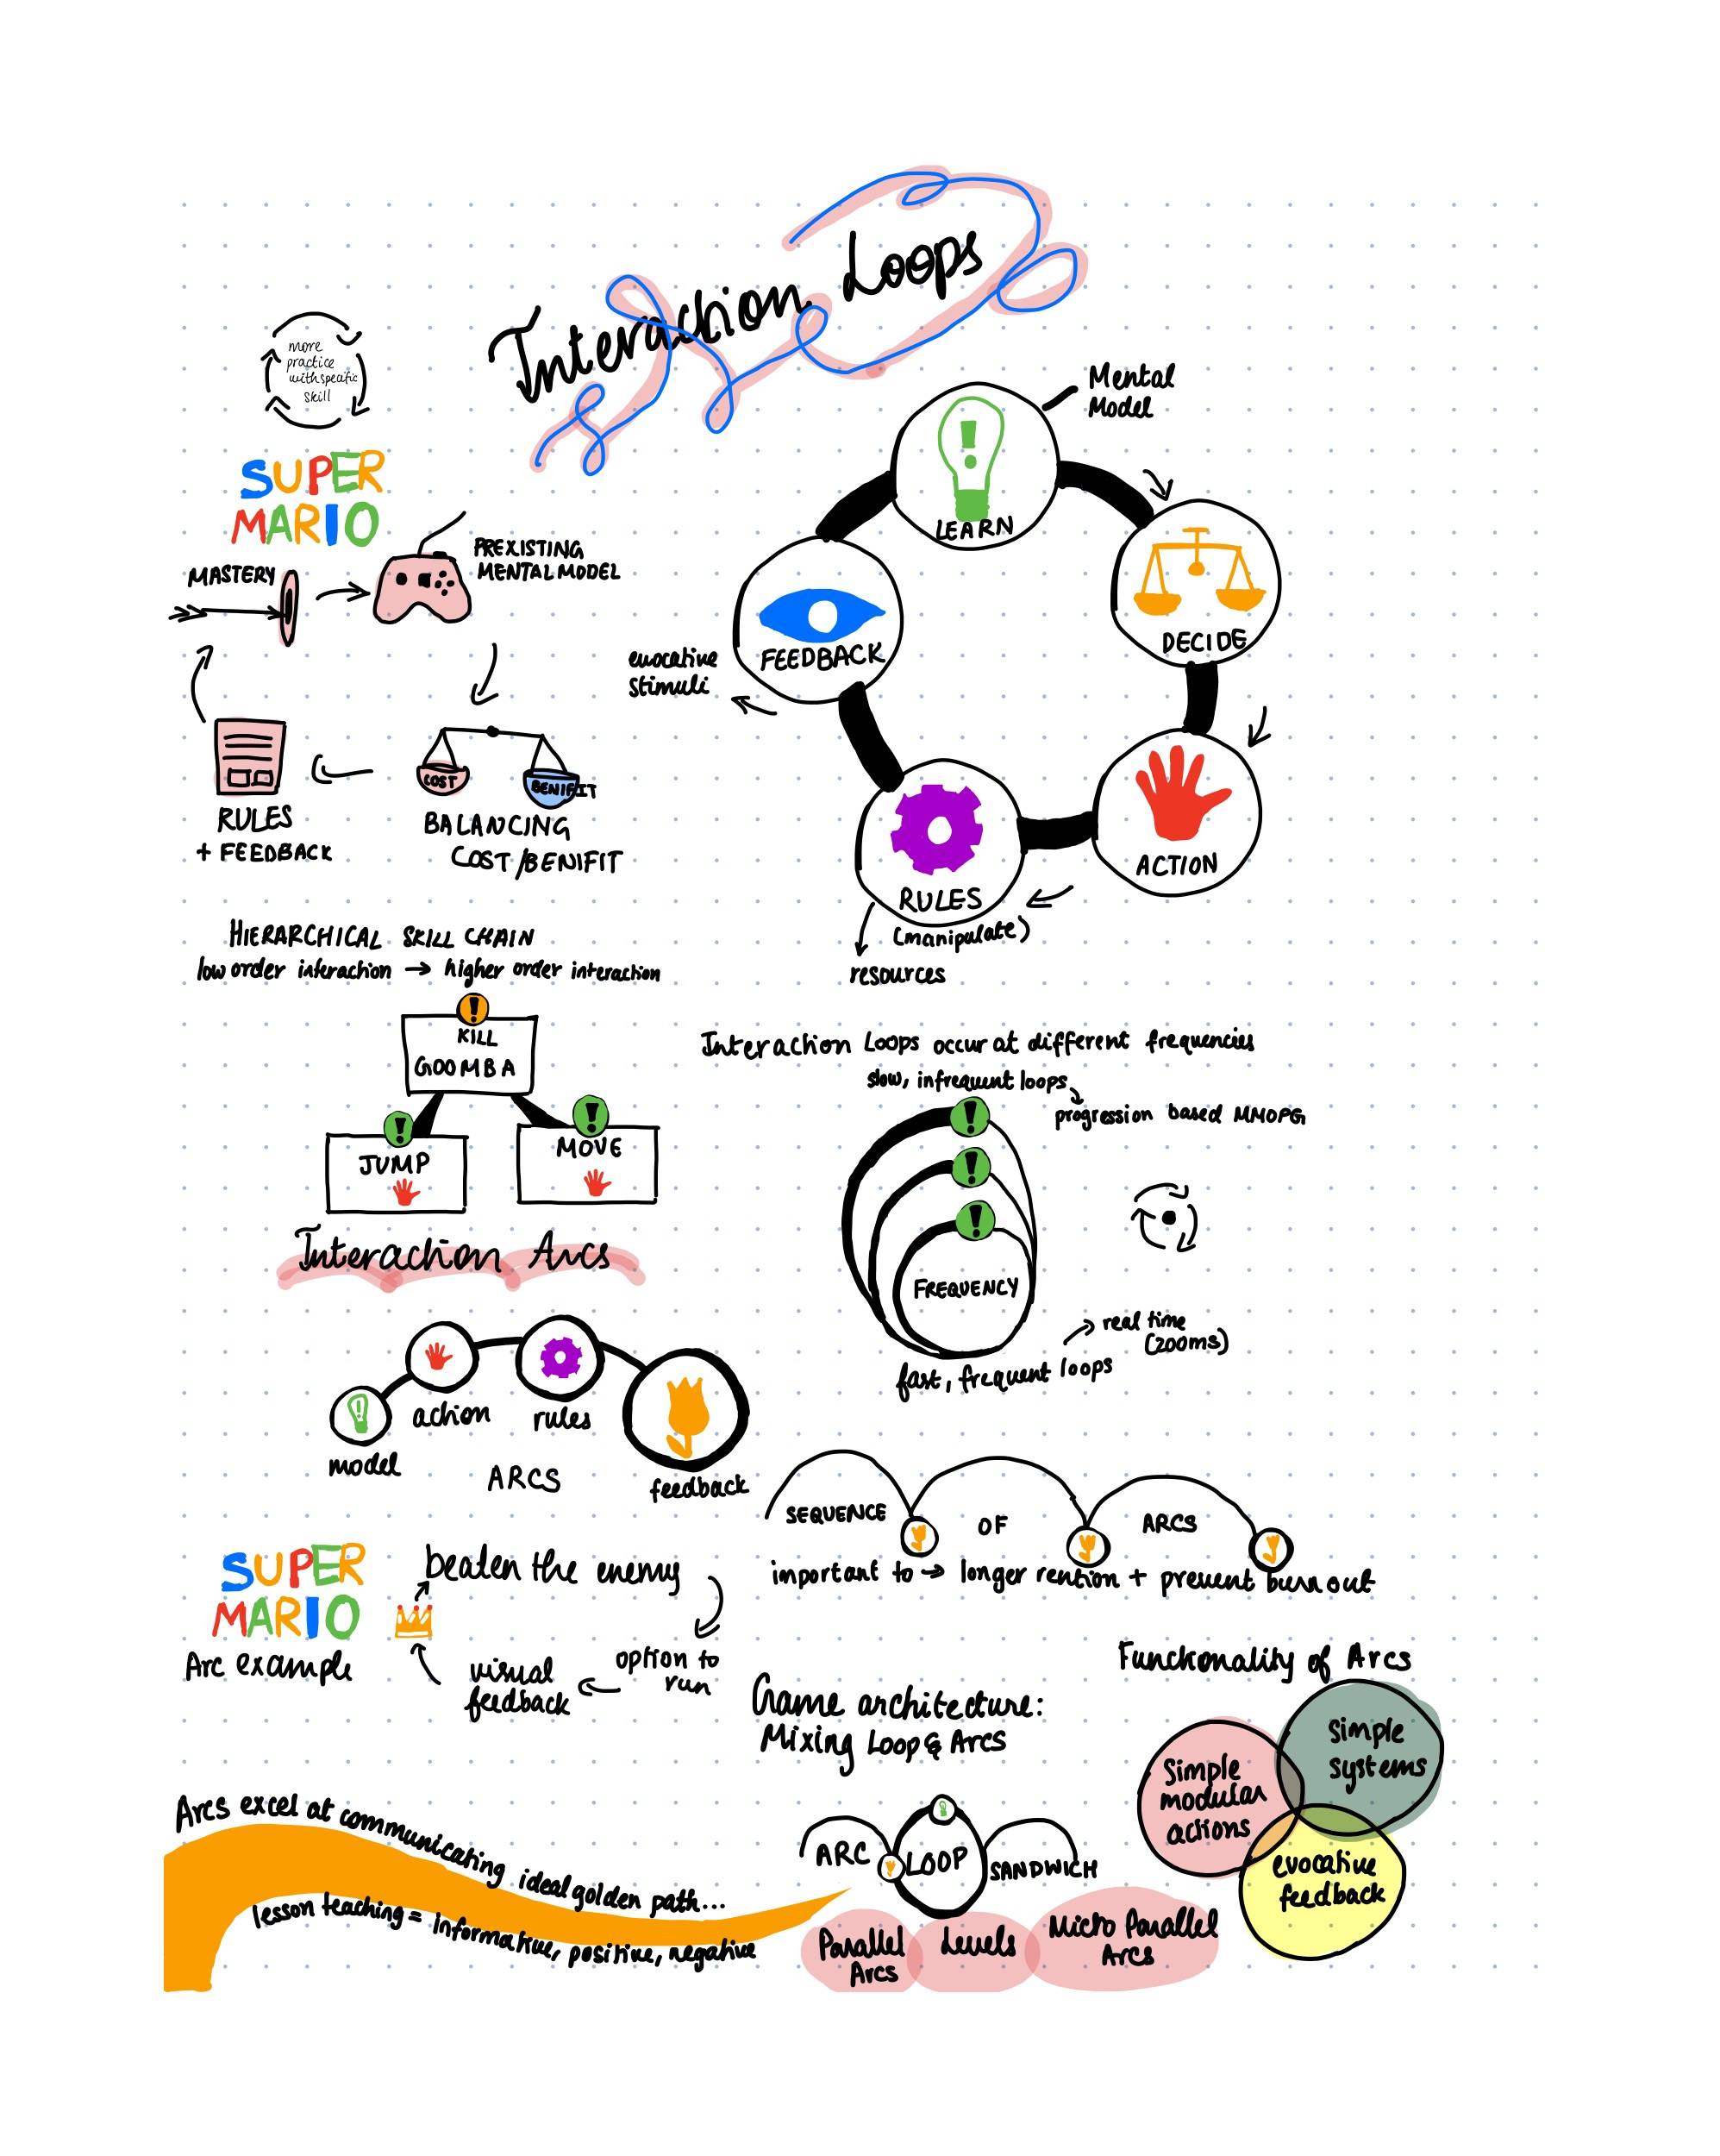 Interaction Loops
more
practice
with specific
skill
SUPER
MARIO
MASTERY
PREXISTING
MENTAL MODEL
COST
BENIFIT
BALANCING
COST/BENIFIT
RULES
+ FEEDBACK
Mental
Model
LEARN
DECIDE
ACTION
RULES
(manipulate)
resources
FEEDBACK
evocative
stimuli
HIERARCHICAL SKILL CHAIN
low order interaction → higher order interaction
!
KILL
GOOMBA
!
JUMP
!
MOVE
Interaction Loops occur at different frequencies
slow, infrequent loops
progression based MMOPG
!
!
!
FREQUENCY
real time
(200ms)
fast, frequent loops
Interaction Arcs
model
action
rules
feedback
ARCS
SEQUENCE OF ARCS
important to → longer rention + prevent burn out
SUPER
MARIO
Arc example
beaten the enemy
option to
run
visual
feedback
Game architecture:
Mixing Loop & Arcs
ARC LOOP SANDWICH
Parallel
Arcs
Levels
Micro Parallel
Arcs
Functionality of Arcs
Simple
modular
actions
simple
systems
evocative
feedback
Arcs excel at communicating ideal golden path...
lesson teaching = informative, positive, negative